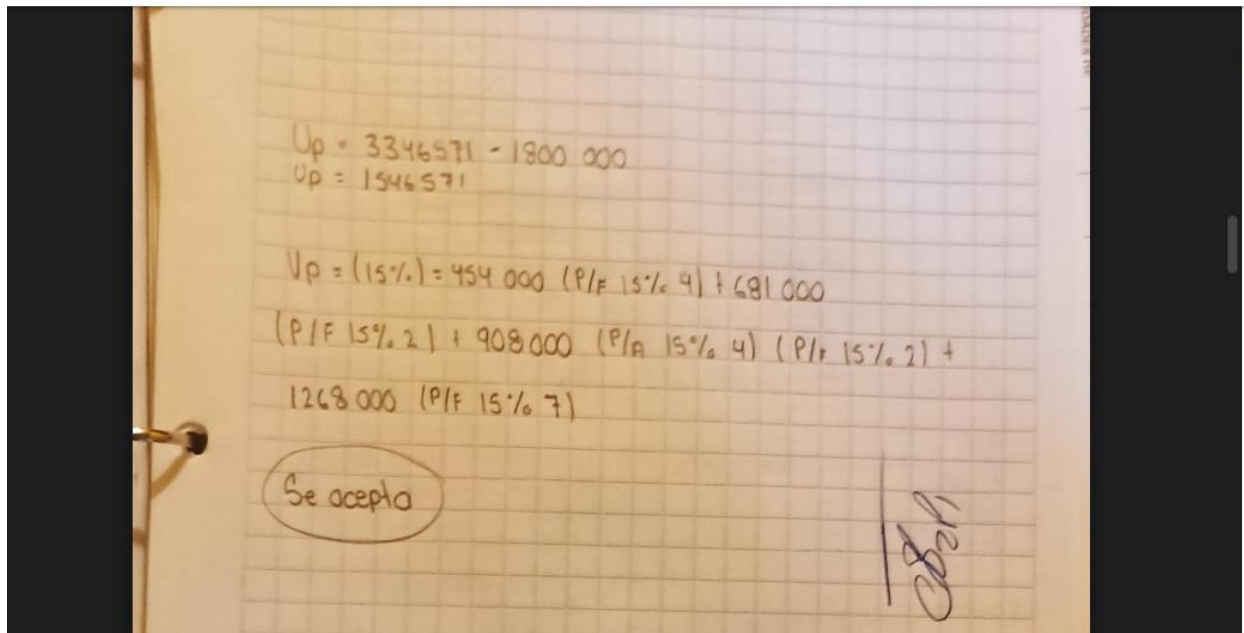 Up = 3346571 - 1800 000
Up = 1546571
Vp = (15%) = 454 000 (P/F 15% 4) + 681 000
(P/F 15% 2) + 908000 (P/A 15% 4) (P/F 15% 2) +
1268 000 (P/F 15% 7)
Se acepta